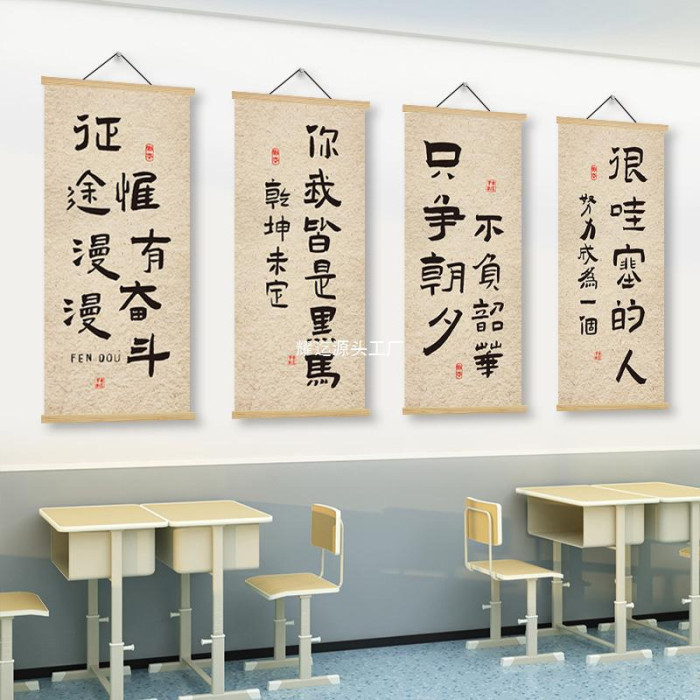 征途漫漫
惟有奋斗
FEN DOU
乾坤未定
你我皆是黑馬
只争朝夕
不负韶華
努力成為一個
很哇塞的人
源头工厂